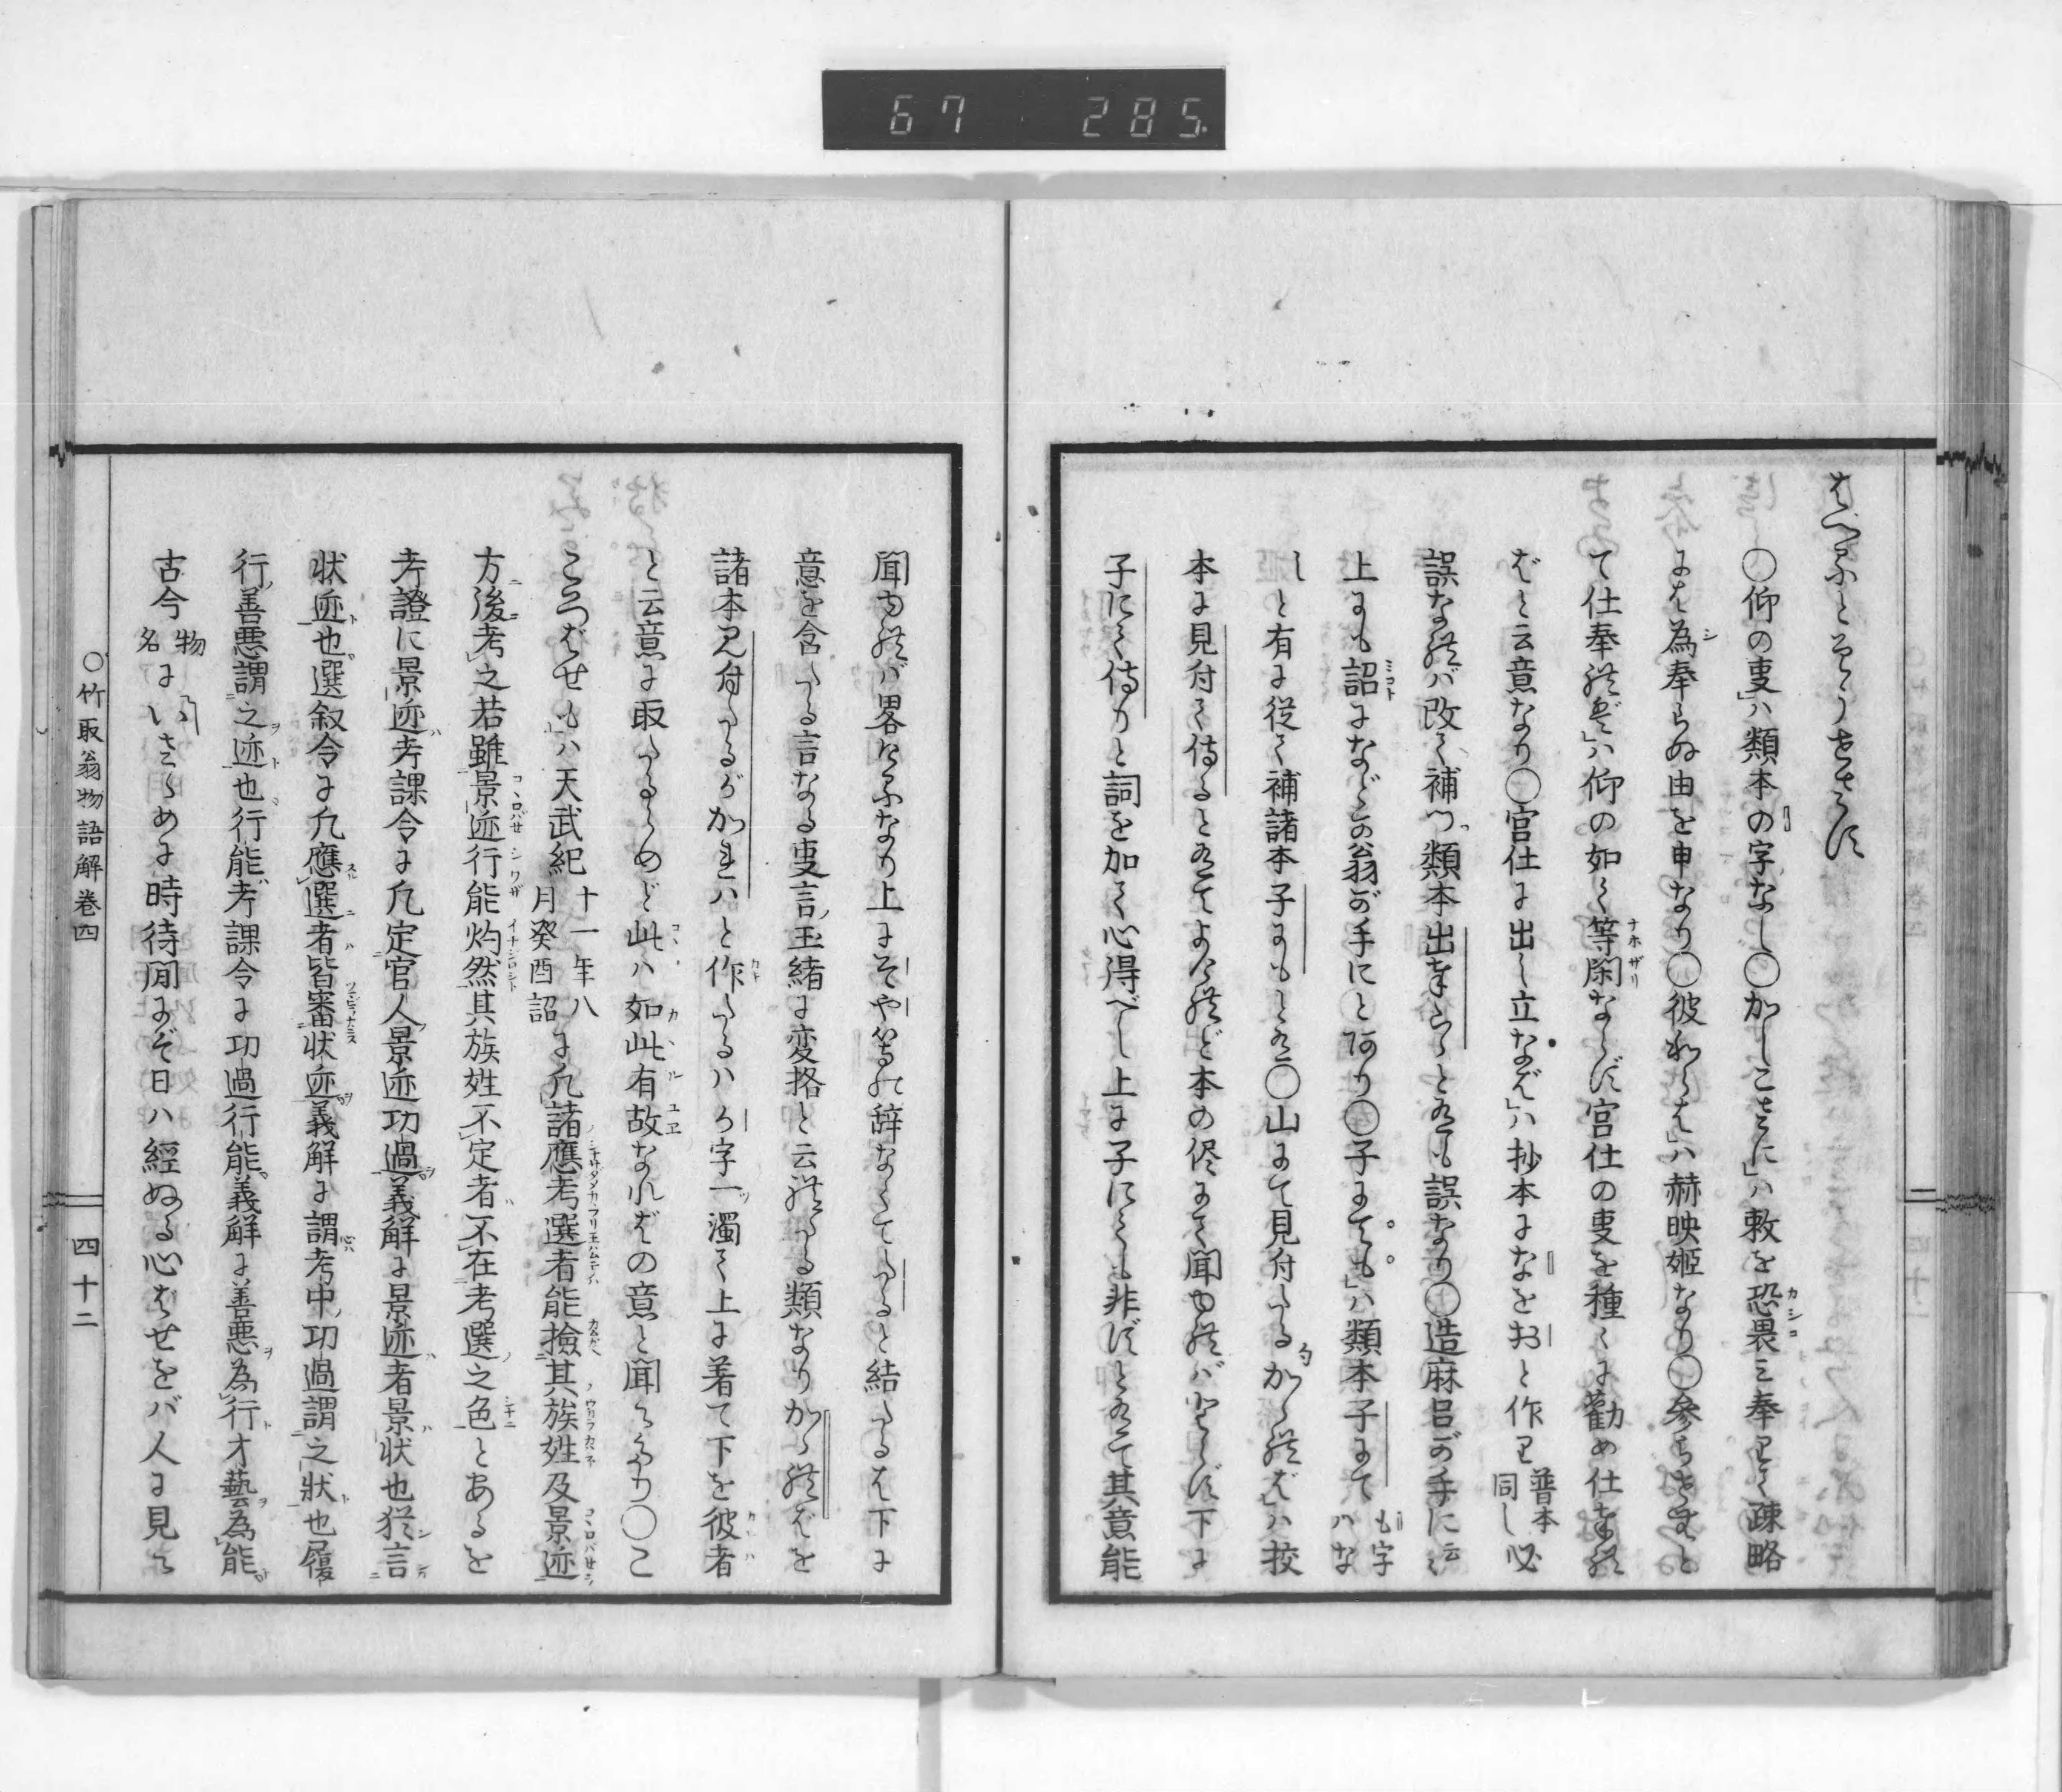 67 285
はべふとそうせさす
○仰の叓」ハ類本の字なし○かしこさに」ハ敕を恐畏ミ奉りて疎略
にえ為奉らぬ由を申なり○彼奴らは」ハ赫映姫なり○参らせむと
て仕奉れど」ハ仰の如く等閑ならず宮仕の叓を種々に勸め仕奉れ
ばと云意なり○宮仕に出し立なば」ハ抄本になをおと作り普本同し必
誤なれバ改て補つ類本出奉らくと有も誤なり○造麻呂が手に云々
上にも詔になどか翁が手にと阿り○子にても」ハ類本子にて も字ハな
しと有に従て補諸本子にもと有○山にて見付たるかゝれば」ハ挍
本に見付て侍ると有てよけれど本の侭にて聞ゆれバ非らず下に
子にて侍りと詞を加て心得べし上に子にても非ずと有て其意能
聞ゆれバ畧けるなり上にぞや等の辞なくてたると結たるは下に
意を含たる言なる叓言玉緒に変挌と云れたる類なりかゝれバを
諸本見付たるがかれハと作たるハか字一ツ濁て上に着て下を彼者
と云意に取たるらめど此ハ如此有故なればの意と聞えたり○こ
ころばせも」ハ天武紀十一年八月癸酉詔に凡諸應考選者能撿其族姓及景迹
方後考之若雖景迹行能灼然其族姓不定者不在考選之色とあるを
考證に景迹考課令に凡定官人景迹功過義解に景迹者景状也猶言
状迹也選叙令に凡應選者皆審状迹義解に謂考中功過謂之状也履
行善悪謂之迹也行能考課令に功過行能義解に善悪為行才藝為能
古今物名にいさゝめに時待間にぞ日ハ經ぬる心ばせをバ人に見え
○竹取翁物語解巻四
四十二